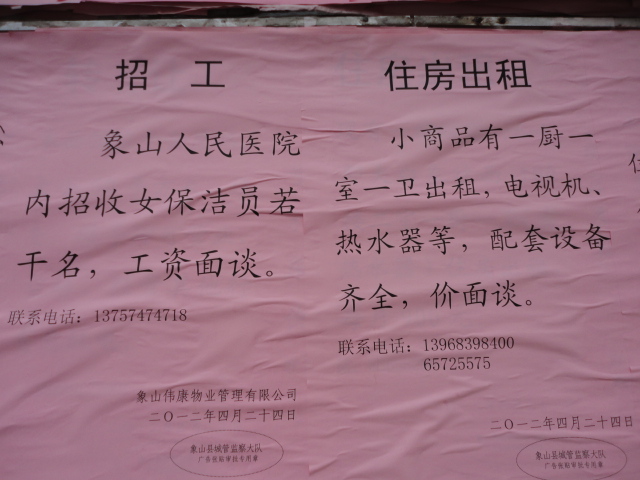 招 工
象山人民医院
内招收女保洁员若
干名，工资面谈。
联系电话：13757474718
象山伟康物业管理有限公司
二〇一二年四月二十四日
象山县城管监察大队
广告张贴审批专用章
住房出租
小商品有一厨一
室一卫出租，电视机、
热水器等，配套设备
齐全，价面谈。
联系电话：13968398400
65725575
二〇一二年四月二十四日
象山县城管监察大队
广告张贴审批专用章